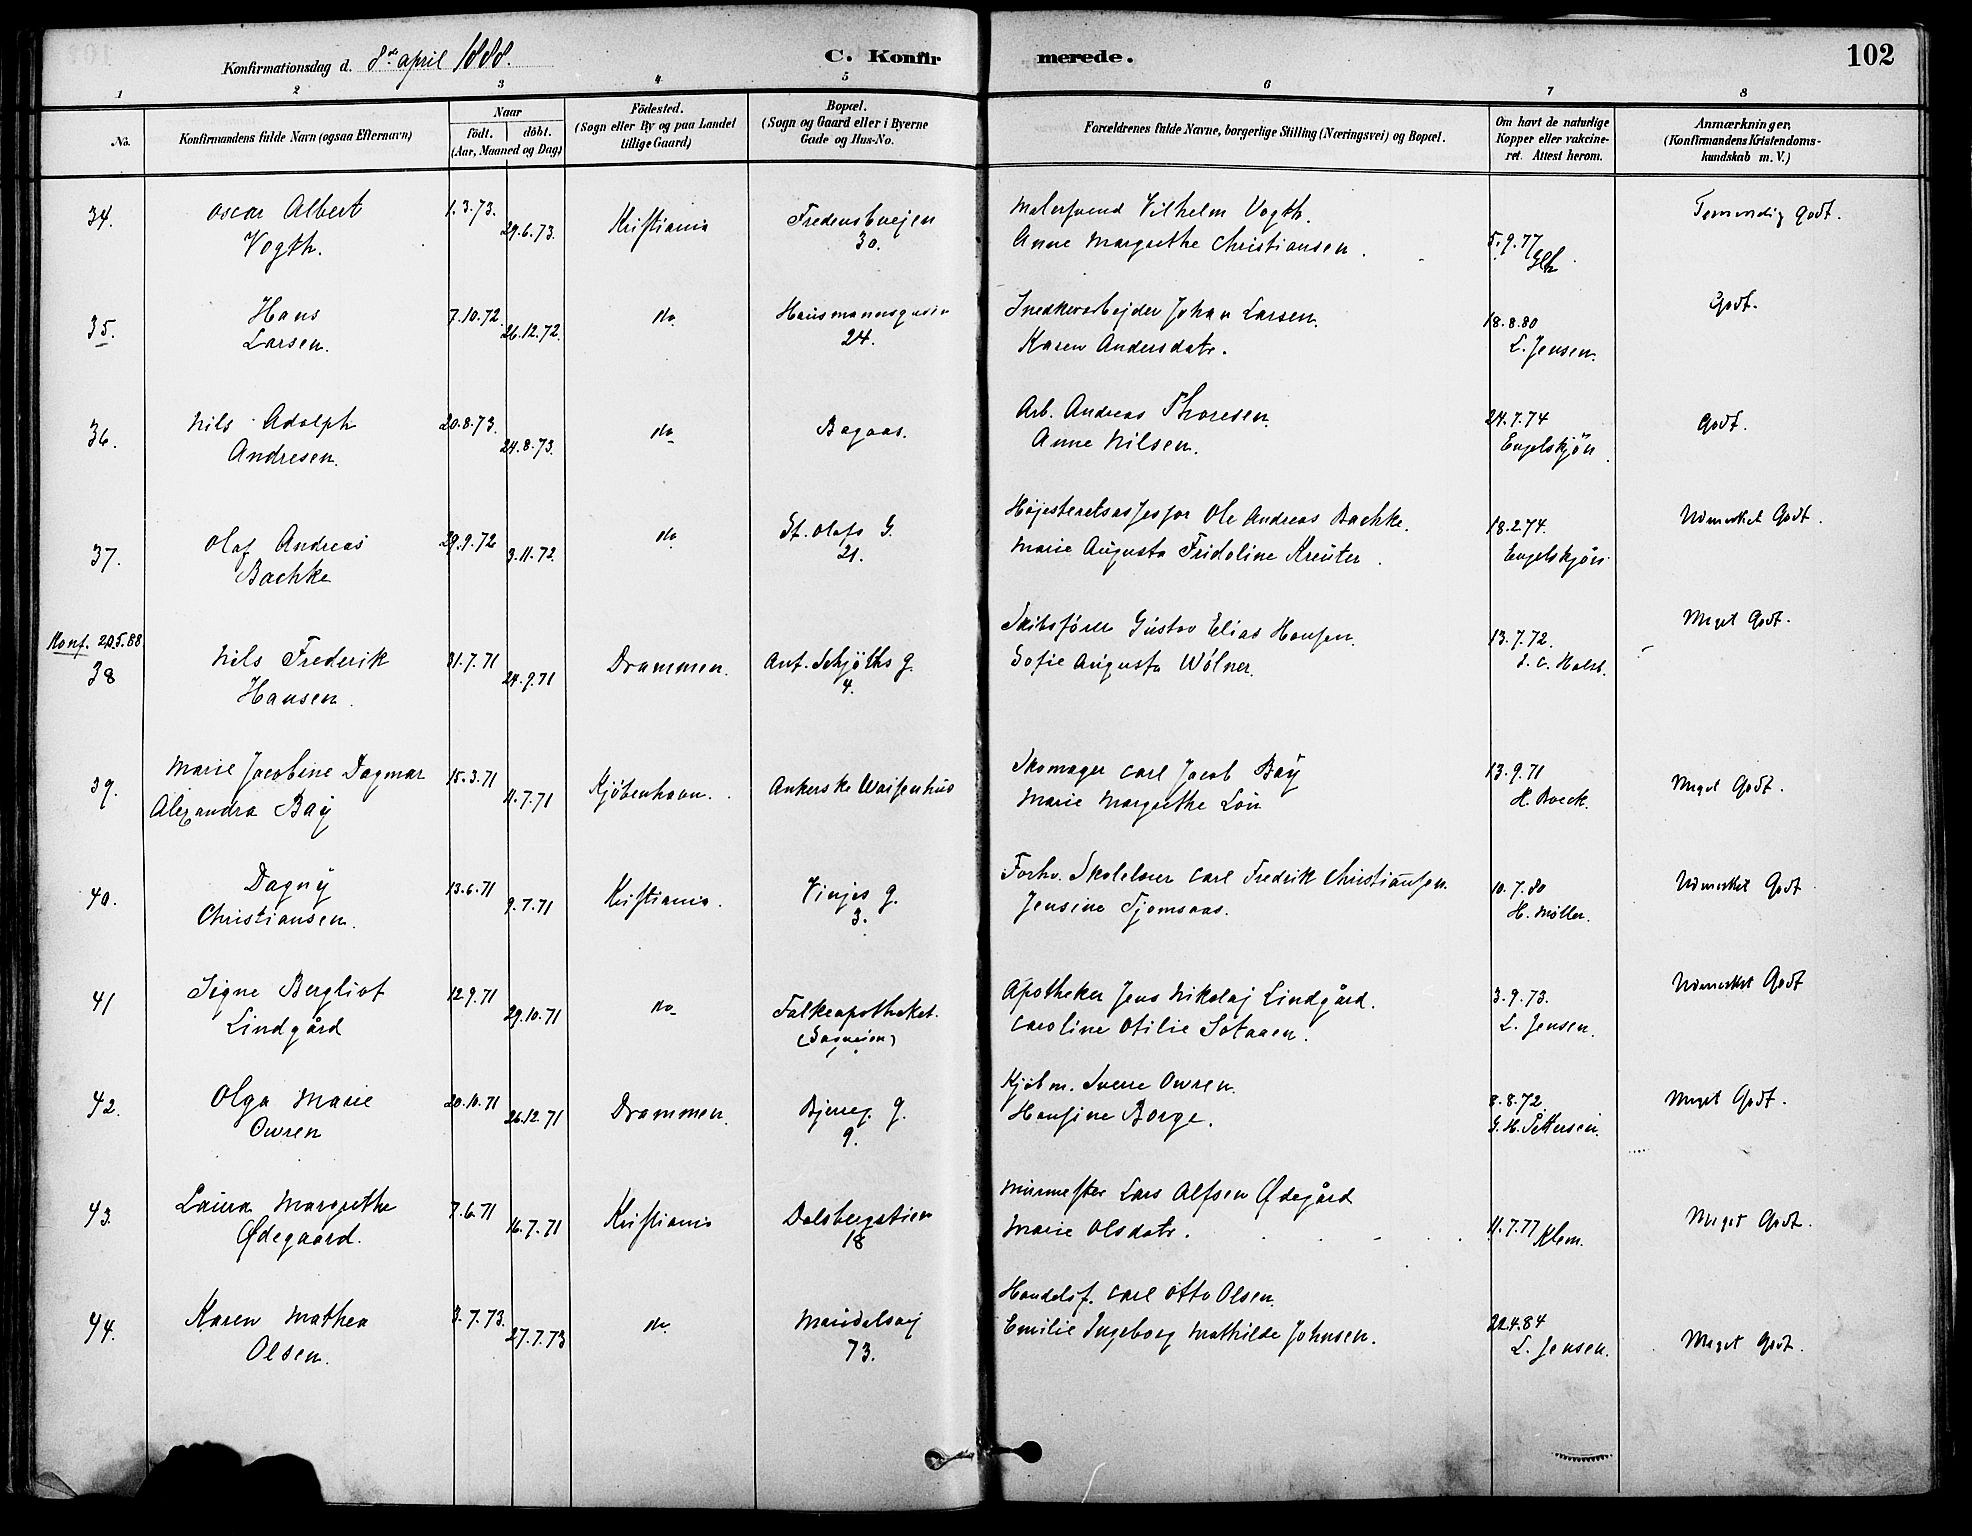 Konfirmationsdag d. 8de april 1888.
C. Konfirmerede.
102
1 2 3 4 5 6 7 8
No.
Konfirmandens fulde Navn (ogsaa Efternavn)
Naar
födt. döbt.
(Aar, Maaned og Dag)
Födested.
(Sogn eller By og paa Landet
tillige Gaard)
Bopæl.
(Sogn og Gaard eller i Byerne
Gade og Hus-No.
Forældrenes fulde Navne, borgerlige Stilling (Næringsvei) og Bopæl.
Om havt de naturlige
Kopper eller vakcine-
ret. Attest herom.
Anmærkninger,
(Konfirmandens Kristendoms-
kundskab m. V.)
34. Oscar Albert 1.3.73. Kristiania Fredensbvejen Malersvend Vilhelm Vogth. Temmelig Godt.
Vogth. 29.6.73. 30. Anne Margrethe Christiansen. 5.9.77
35. Hans 7.10.72. do Hausmannsgaden Snedkerarbejder Johan Larsen. 18.8.80 Godt.
Larsen. 26.12.72. 24. Karen Andersdatr. L. Jensen.
36. Nils Adolph 20.8.73. do Bagaas. Arb. Andreas Thoresen. 24.7.74 Godt.
Andresen. 24.8.73. Anne Nilsen. Engelskjön.
37. Olaf Andreas 29.9.72 do St. Olafs G. Højesteretsassessor Ole Andreas Bachke. 18.2.74. Udmerket Godt.
Bachke 3.11.72. 21. Marie Augusta Fridoline Kreuter. Engelskjön
Konf. 20.5.88
38 Nils Frederik 31.7.71 Drammen. Ant. Schjøths g. Skibsfører Gustav Elias Hansen. 13.7.72. Meget Godt.
Hansen. 24.9.71 4. Sofie Augusta Wölner. Holst.
39. Marie Jacobine Dagmar 15.3.71 Kjøbenhavn. Ankerske Waisenhus Skomager Carl Jacob Bay 13.9.71 Meget Godt.
Alexandra Bay 11.7.71 Marie Margrethe Lön H. Boeck.
40. Dagny 13.6.71 Kristiania. Vinjes g. Forhv. Skolelærer Carl Fredrik Christiansen. 10.7.80 Udmerket Godt
Christiansen. 9.7.71 3. Jensine Tjomsaas. H. Møller.
41 Signe Bergliot 12.9.71 do Falkeapotheket. Apotheker Jens Nikolaj Lindgård. 3.9.73. Udmerket Godt
Lindgård 29.10.71 Caroline Otilie L. Jensen.
42. Olga Marie 20.10.71 Drammen. Bjerreg. g. Kjøbm. Sverre Owren. 8.8.72 Meget Godt.
Owren 26.12.71 9. Hansine Borge. G. H. Pettersen.
43. Laura Margrethe 7.6.71 Kristiania Dalsbergstien Murmester Lars Alfsen Ødegård Meget Godt.
Ødegaard. 16.7.71 18 Marie Olsdatr. 11.7.77 Klem.
44. Karen Mathea 3.7.73. do Maridalsvej Handelsf. Carl Otto Olsen. 22.4.84 Meget Godt.
Olsen. 27.7.73 73. Emilie Ingeborg Mathilde Johnsen. L. Jensen.